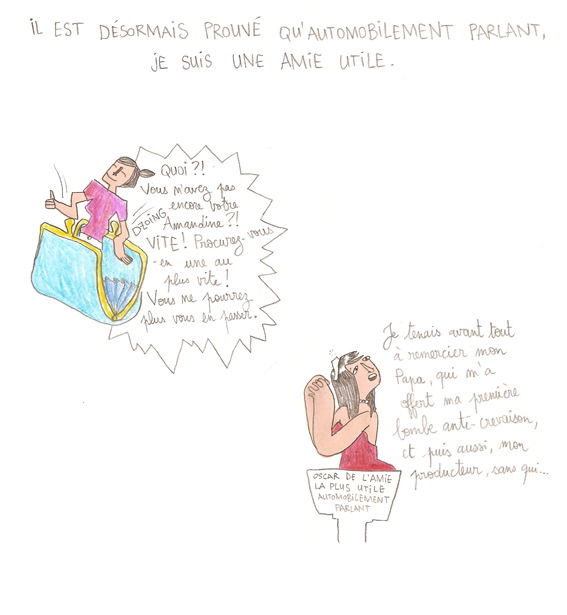 IL EST DÉSORMAIS PROUVÉ QU'AUTOMOBILEMENT PARLANT,
JE SUIS UNE AMIE UTILE.
Quoi ?!
Vous n'avez pas
encore votre
Amandine ?!
VITE ! Procurez-vous
-en une au
plus vite !
Vous ne pourrez
plus vous en passer.
DZOING
Je tenais avant tout
à remercier mon
Papa, qui m'a
offert ma première
bombe anti-crevaison,
et puis aussi, mon
producteur, sans qui...
OSCAR DE L'AMIE
LA PLUS UTILE
AUTOMOBILEMENT
PARLANT